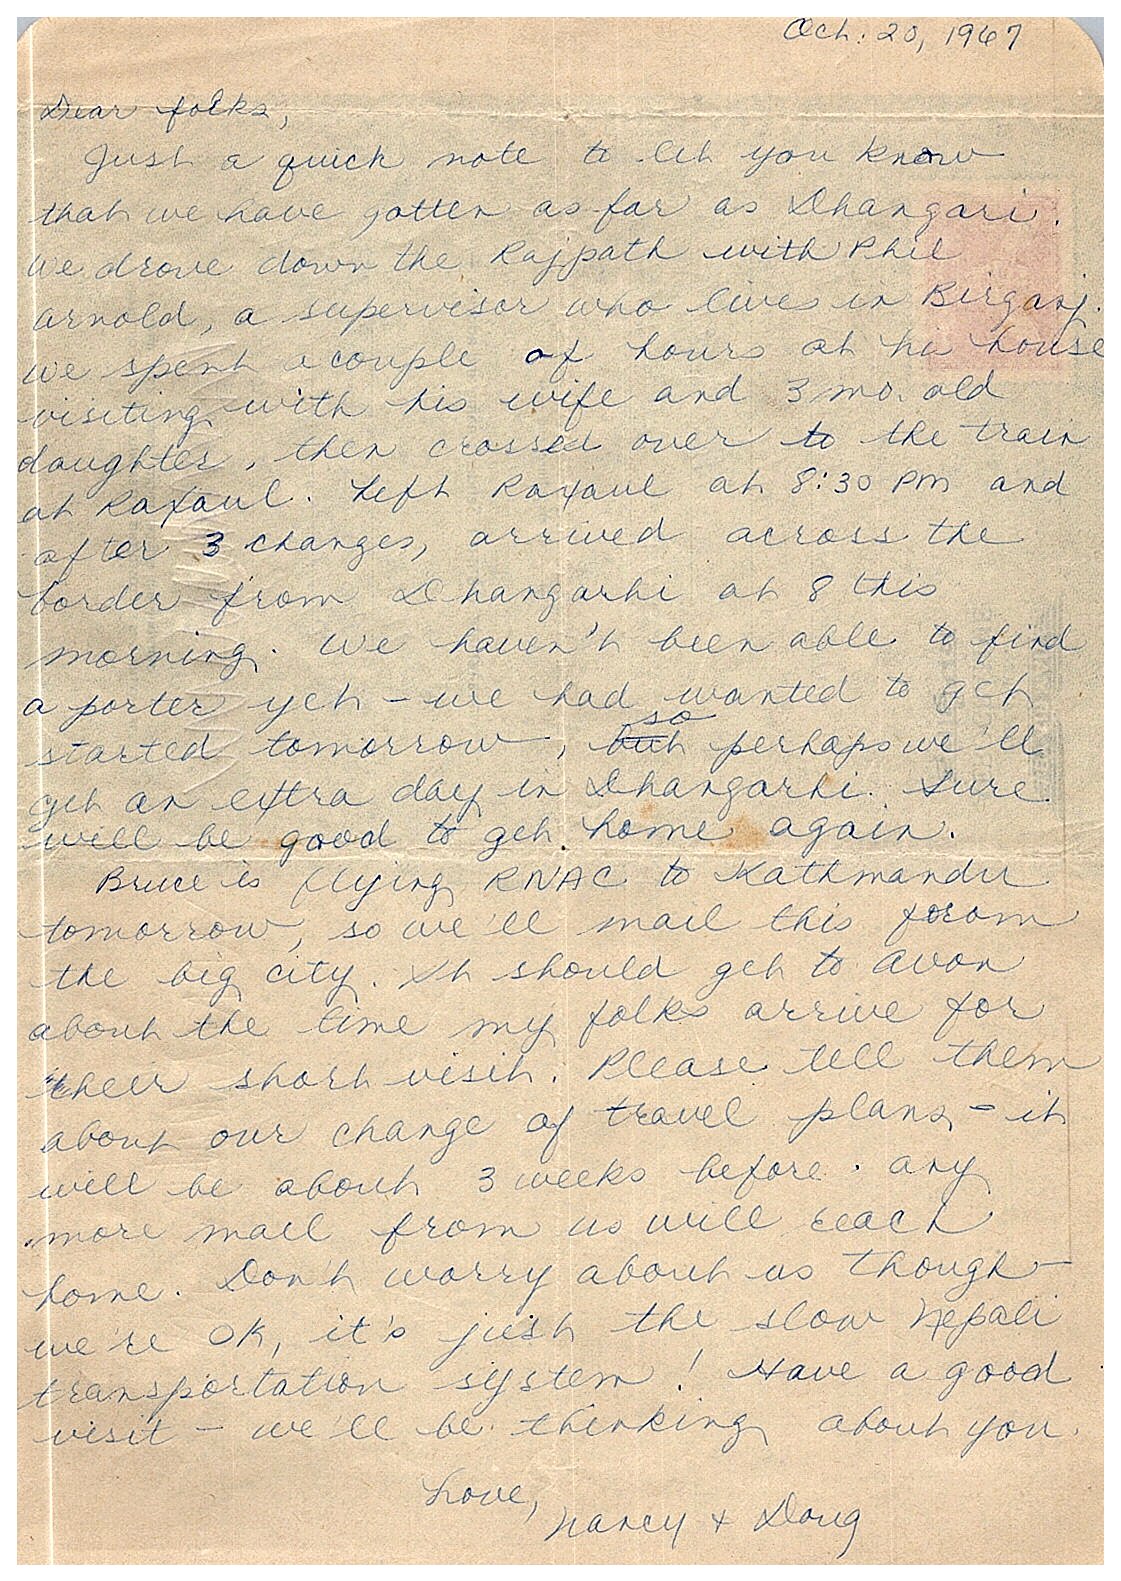 Oct. 20, 1967
Dear folks,
Just a quick note to let you know
that we have gotten as far as Dhangari.
We drove down the Rajpath with Phil
Arnold, a supervisor who lives in Birganj.
We spent a couple of hours at his house
visiting with his wife and 3 mo. old
daughter, then crossed over to the train
at Raxaul. Left Raxaul at 8:30 PM and
after 3 changes, arrived across the
border from Dhangarhi at 8 this
morning. We haven't been able to find
a porter yet - we had wanted to get
started tomorrow, but so perhaps we'll
get an extra day in Dhangarhi. Sure
will be good to get home again.
Bruce is flying RNAC to Kathmandu
tomorrow, so we'll mail this from
the big city. It should get to Avon
about the time my folks arrive for
their short visit. Please tell them
about our change of travel plans - it
will be about 3 weeks before any
more mail from us will reach
home. Don't worry about us though -
we're OK, it's just the slow Nepali
transportation system! Have a good
visit - we'll be thinking about you.
Love,
Nancy + Doug